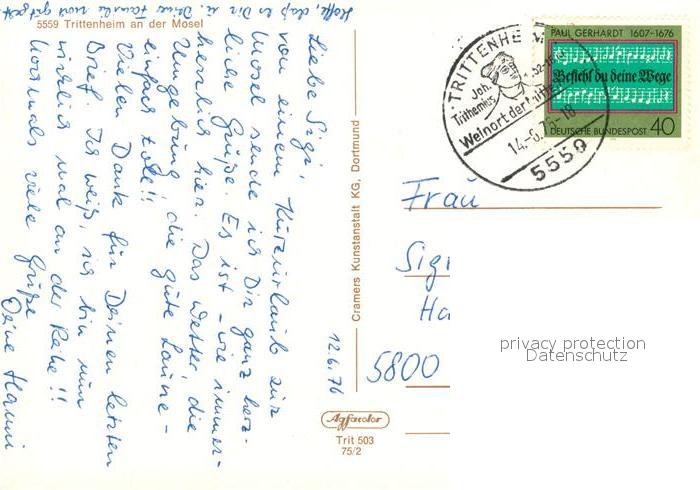 Hoffe, daß es Dir u. Deiner Familie recht gut geht.
5559 Trittenheim an der Mosel
Liebe Sigi,
von einem Kurzurlaub zur
Mosel sende ich Dir ganz herz-
liche Grüße. Es ist - wie immer -
herrlich hier. Das Wetter, die
Umgebung, die gute Laune -
einfach toll!!
Vielen Dank für Deinen letzten
Brief. Ich weiß, ich bin nun
wirklich mal an der Reihe!!
Nochmals viele Grüße
Deine Hanni
12.6.76
Cramers Kunstanstalt KG, Dortmund
Agfacolor
Trit 503
75/2
TRITTENHE
Joh.
Trithemius
Weinort der
14.-6.76-18
5559
PAUL GERHARDT 1607-1676
Befiehl du deine Wege
DEUTSCHE BUNDESPOST 40
Frau
Sigi
Ha
5800
privacy protection
Datenschutz